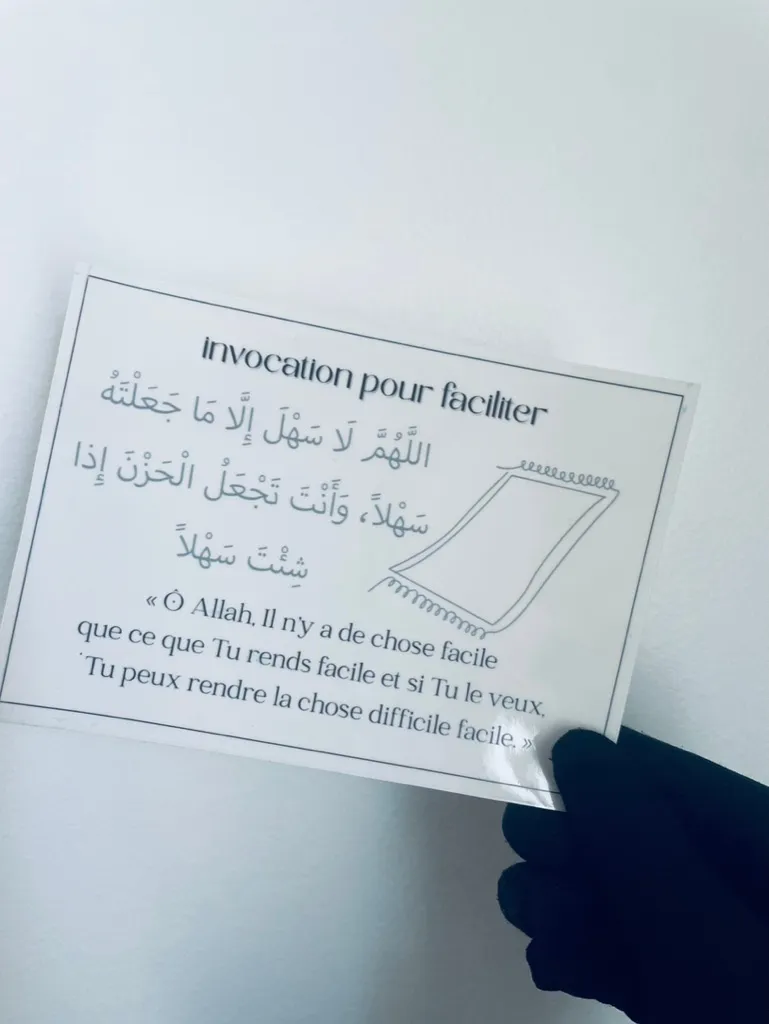 invocation pour faciliter
اللَّهُمَّ لَا سَهْلَ إِلَّا مَا جَعَلْتَهُ
سَهْلاً، وَأَنْتَ تَجْعَلُ الْحَزْنَ إِذا
شِئْتَ سَهْلاً
« Ô Allah, Il n'y a de chose facile
que ce que Tu rends facile et si Tu le veux,
Tu peux rendre la chose difficile facile. »